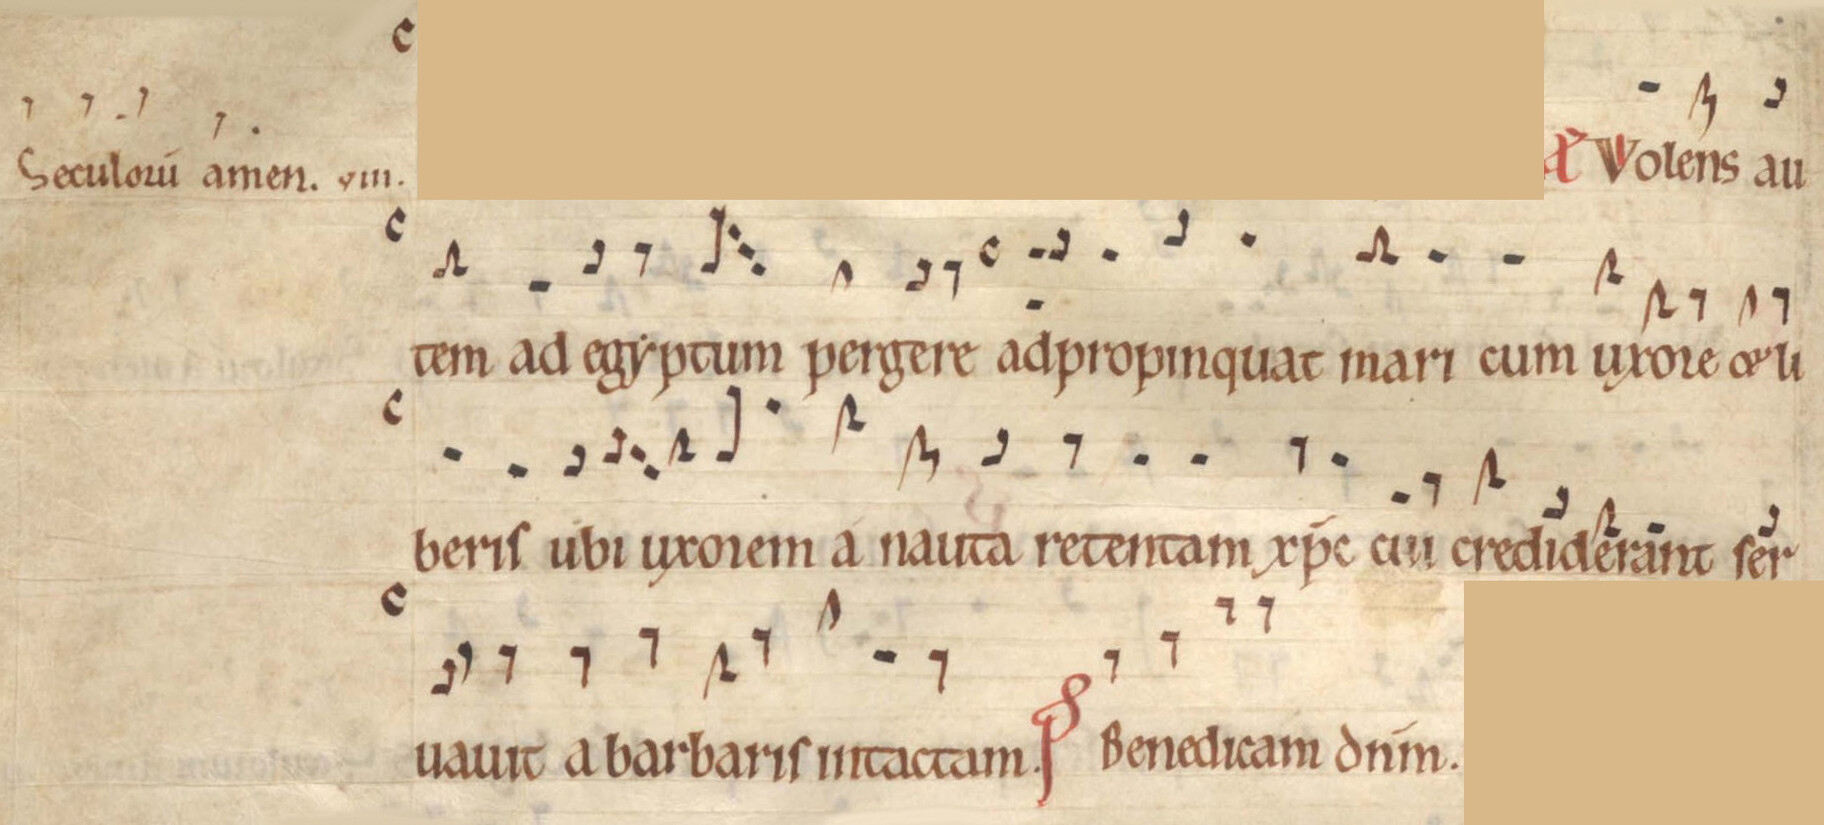 c
Seculorū amen. viii. A Volens au
c c
tem ad egẏptum pergere adpropinquat mari cum uxore & li
c
beris ubi uxorem a nauta retentam xp̄c cui crediderant ser
c
uauit a barbaris intactam. P Benedicam dnm̄.